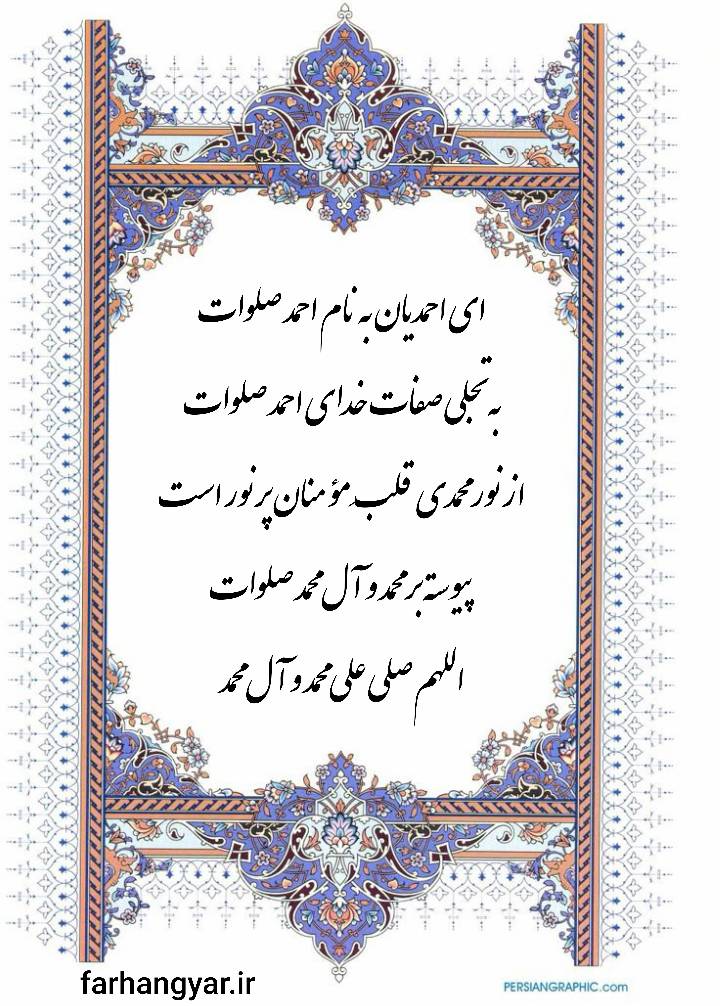 ای احمدیان به نام احمد صلوات
به تجلی صفات خدای احمد صلوات
از نور محمدی قلب مؤمنان پر نور است
پیوسته بر محمد و آل محمد صلوات
اللهم صلی علی محمد و آل محمد
farhangyar.ir
PERSIANGRAPHIC.com